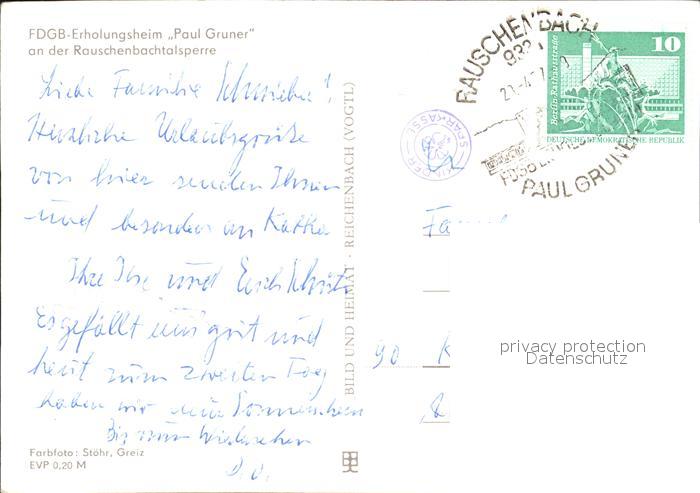 FDGB-Erholungsheim „Paul Gruner"
an der Rauschenbachtalsperre
Liebe Familie
Herzliche Urlaubsgrüße
von hier senden Ihnen
und besonders an Kathka
Ihre Ilse und Erich
Es gefällt uns gut und
heut zum zweiten Tag
haben wir nur Sonnenschein
Bis zum Wiedersehen
D.O.
Farbfoto: Stöhr, Greiz
EVP 0,20 M
BILD UND HEIMAT · REICHENBACH (VOGTL)
RAUSCHENBACH
PAUL GRUNER
10
Berlin-Rathausstraße
DEUTSCHE DEMOKRATISCHE REPUBLIK
SPARKASSE
Fam
90 K
privacy protection
Datenschutz